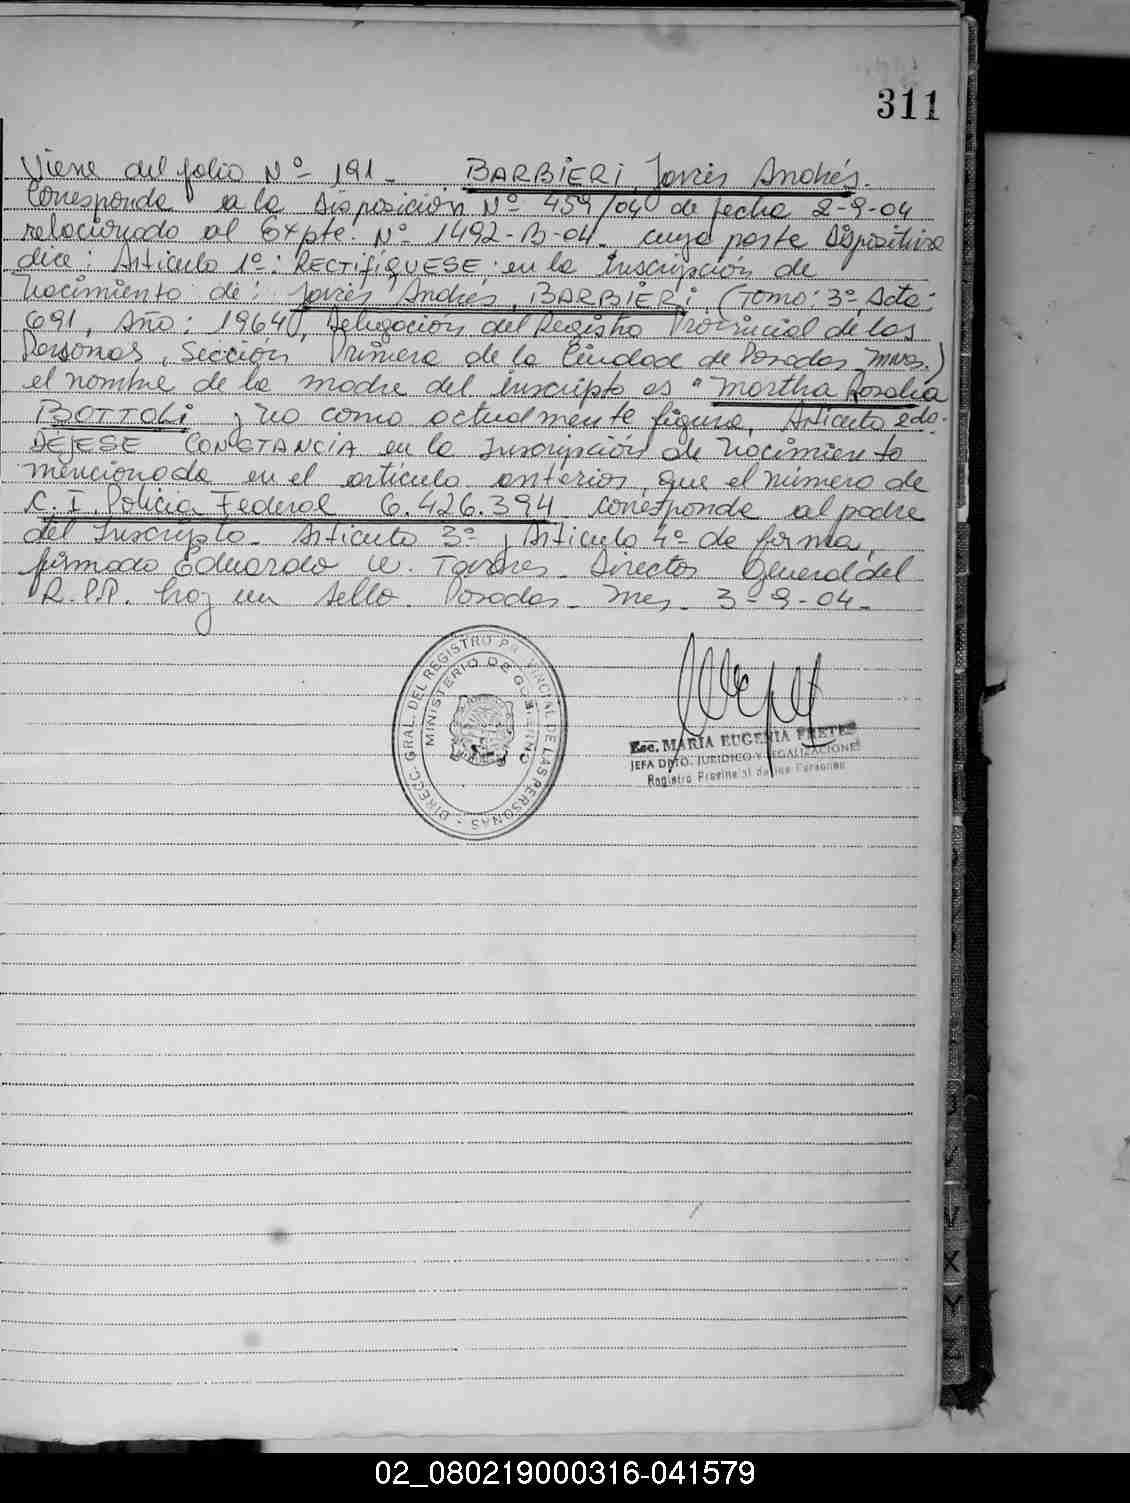 311
Viene del folio Nº 191_ BARBIERI Javier Andrés_
Corresponde a la Disposición Nº 459/04 de fecha 2-9-04
relacionado al Expte. Nº 1492-B-04_ cuya parte dispositiva
dice: Artículo 1º: RECTIFÍQUESE en la Inscripción de
Nacimiento de: Javier Andrés BARBIERI (Tomo: 3º, Acta:
691, Año: 1964, Delegación del Registro Provincial de las
Personas, Sección Primera de la Ciudad de Posadas Mnes.)
el nombre de la madre del inscripto es "Martha Rosalia
BOTTOLI y no como actualmente figura, Artículo 2do.
DÉJESE CONSTANCIA en la Inscripción de Nacimiento
mencionada en el artículo anterior, que el número de
C. I. Policia Federal 6.426.394 corresponde al padre
del Inscripto_ Artículo 3º y Artículo 4º de forma,
firmado Eduardo W. Director General del
R.P.P. hay un sello. Posadas_ Mnes_ 3-9-04_
DIRECC. GRAL. DEL REGISTRO PROVINCIAL DE LAS PERSONAS -
MINISTERIO DE GOBIERNO
Esc. MARIA EUGENIA FRETES
JEFA DPTO. JURIDICO Y LEGALIZACIONES
Registro Provincial de las Personas
V
X
Y
02_080219000316-041579